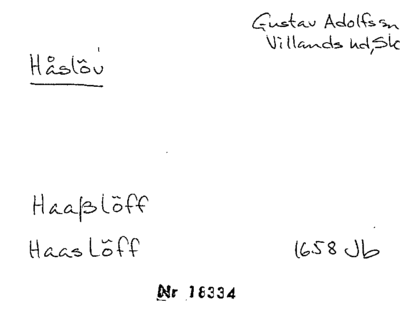 Gustav Adolfs sn
Villands hd, Sk
Håslöv
Haaßlöff
Haaslöff 1658 Jb
Nr 18334